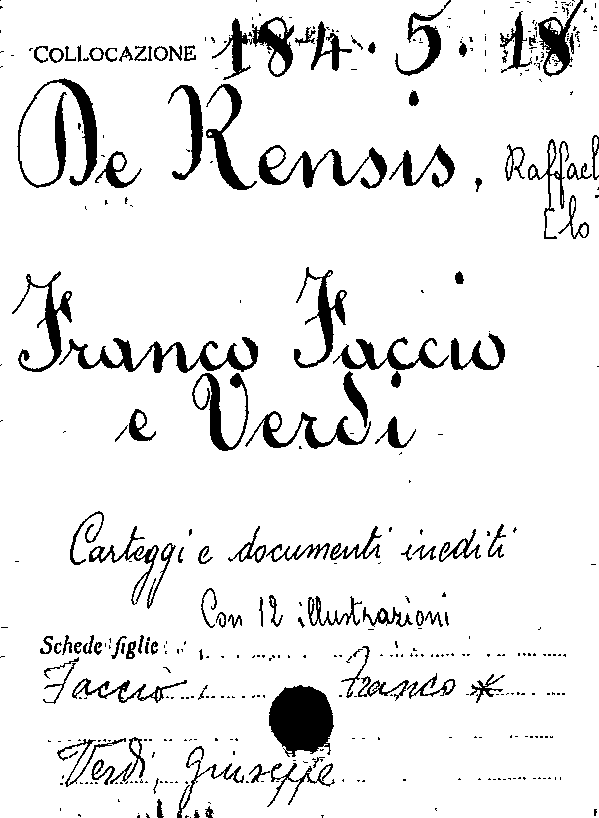 COLLOCAZIONE 184.5.18
De Rensis, Raffael
[lo
Franco Faccio
e Verdi
Carteggi e documenti inediti
Con 12 illustrazioni
Schede figlie:
Faccio, Franco *
Verdi, Giuseppe